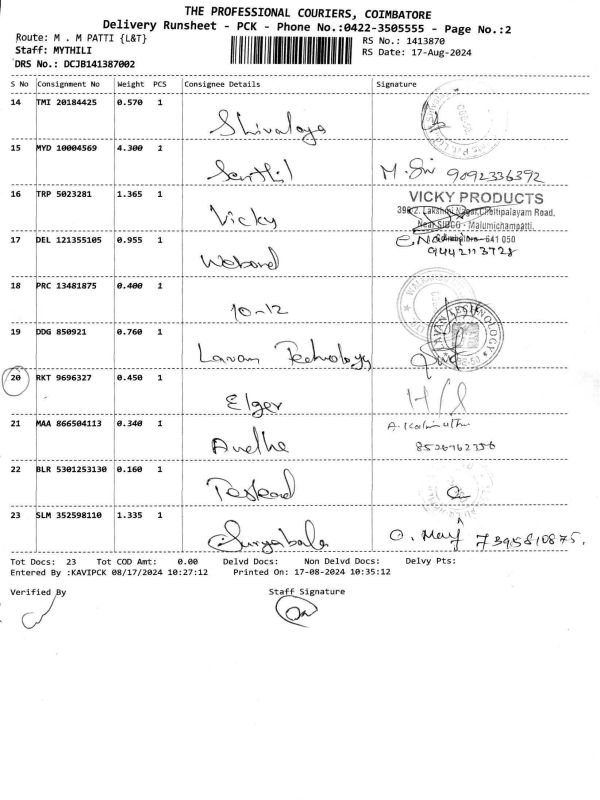 THE PROFESSIONAL COURIERS, COIMBATORE
Delivery Runsheet - PCK - Phone No.:0422-3505555 - Page No.:2
Route: M . M PATTI {L&T}
RS No.: 1413870
Staff: MYTHILI
RS Date: 17-Aug-2024
DRS No.: DCJB141387002
S No Consignment No Weight PCS Consignee Details Signature
14 TMI 20184425 0.570 1
Shivalaya
15 MYD 10004569 4.300 1
Senthil M. Sri 9092336392
16 TRP 5023281 1.365 1
VICKY PRODUCTS
398/2, Lakshmi Nagar, Chettipalayam Road,
Vicky Near SIDCO - Malumichampatti,
17 DEL 121355105 0.955 1 Coimbatore - 641 050
9442113728
18 PRC 13481875 0.400 1
10-12
19 DDG 850921 0.760 1
LAVAN TECHNOLOGY
Lavan Technology
20 RKT 9696327 0.450 1
Elger
21 MAA 866504113 0.340 1
22 BLR 5301253130 0.160 1
23 SLM 352598110 1.335 1
Suryabala 7395810875.
Tot Docs: 23 Tot COD Amt: 0.00 Delvd Docs: Non Delvd Docs: Delvy Pts:
Entered By :KAVIPCK 08/17/2024 10:27:12 Printed On: 17-08-2024 10:35:12
Verified By Staff Signature